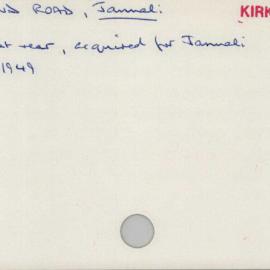 ND ROAD, Jannali KIRK
at rear, acquired for Jannali
1949